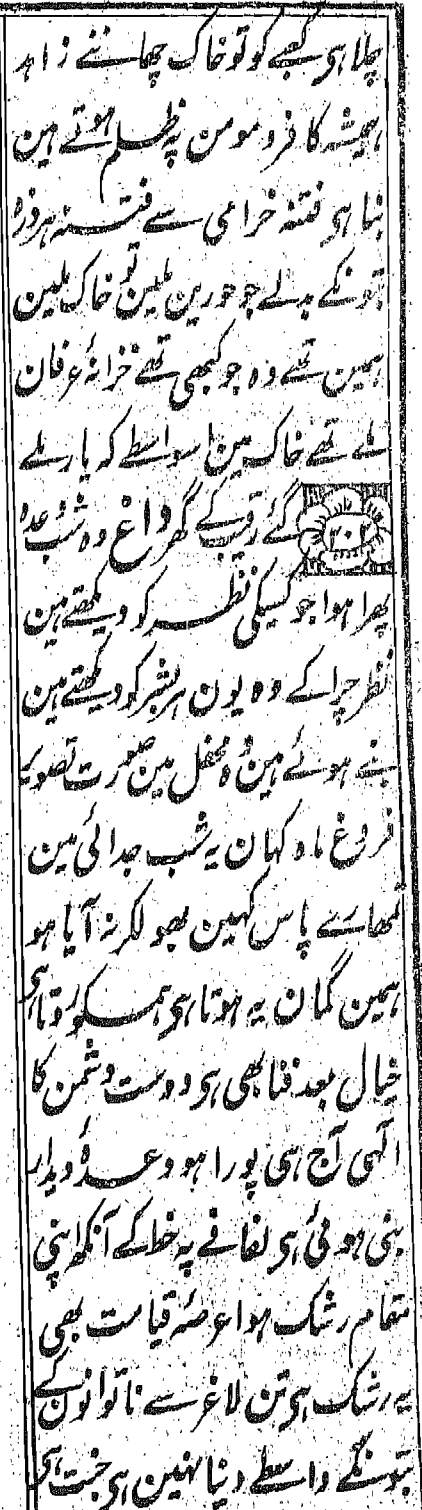 چلا ہی کعبے کو تو خاک چھاننے زاہد
ہمیشہ کافر و مومن پہ ظلم ہوتے ہین
بنا ہی فتنہ خرامی سے فتنہ ہر ذرہ
بتونکے بدلے جو حورین ملین تو خاک ملین
ہمین تھے وہ جو کبھی تھے خزانۂ عرفان
ملے تھے خاک مین اسواسطے کہ یار ملے
گئے رقیب کے گھر داغ وہ شب وعدہ
۳۰۲
پھرا ہوا جو کسیکی نظر کو دیکھتے ہین
نظر چرا کے وہ یون ہر بشر کو دیکھتے ہین
بنے ہوئے ہین وہ محفل مین صورت تصویر
فروغ ماہ کہان یہ شب جدائی مین
تمھارے پاس کہین بھولکر نہ آیا ہو
ہمین گمان یہ ہوتا ہی ہمسکو روتا ہی
خیال بعد فنا بھی ہی دوست دشمن کا
الٰہی آج ہی پورا ہو وعدۂ دیدار
بنی ہوئی ہی لفافے پہ خط کے آنکھ اپنی
مقام رشک ہوا عرصۂ قیامت بھی
یہ رشک ہی تن لاغر سے ناتوانون کے
بتونکے واسطے دنیا نہین ہی جنت ہی